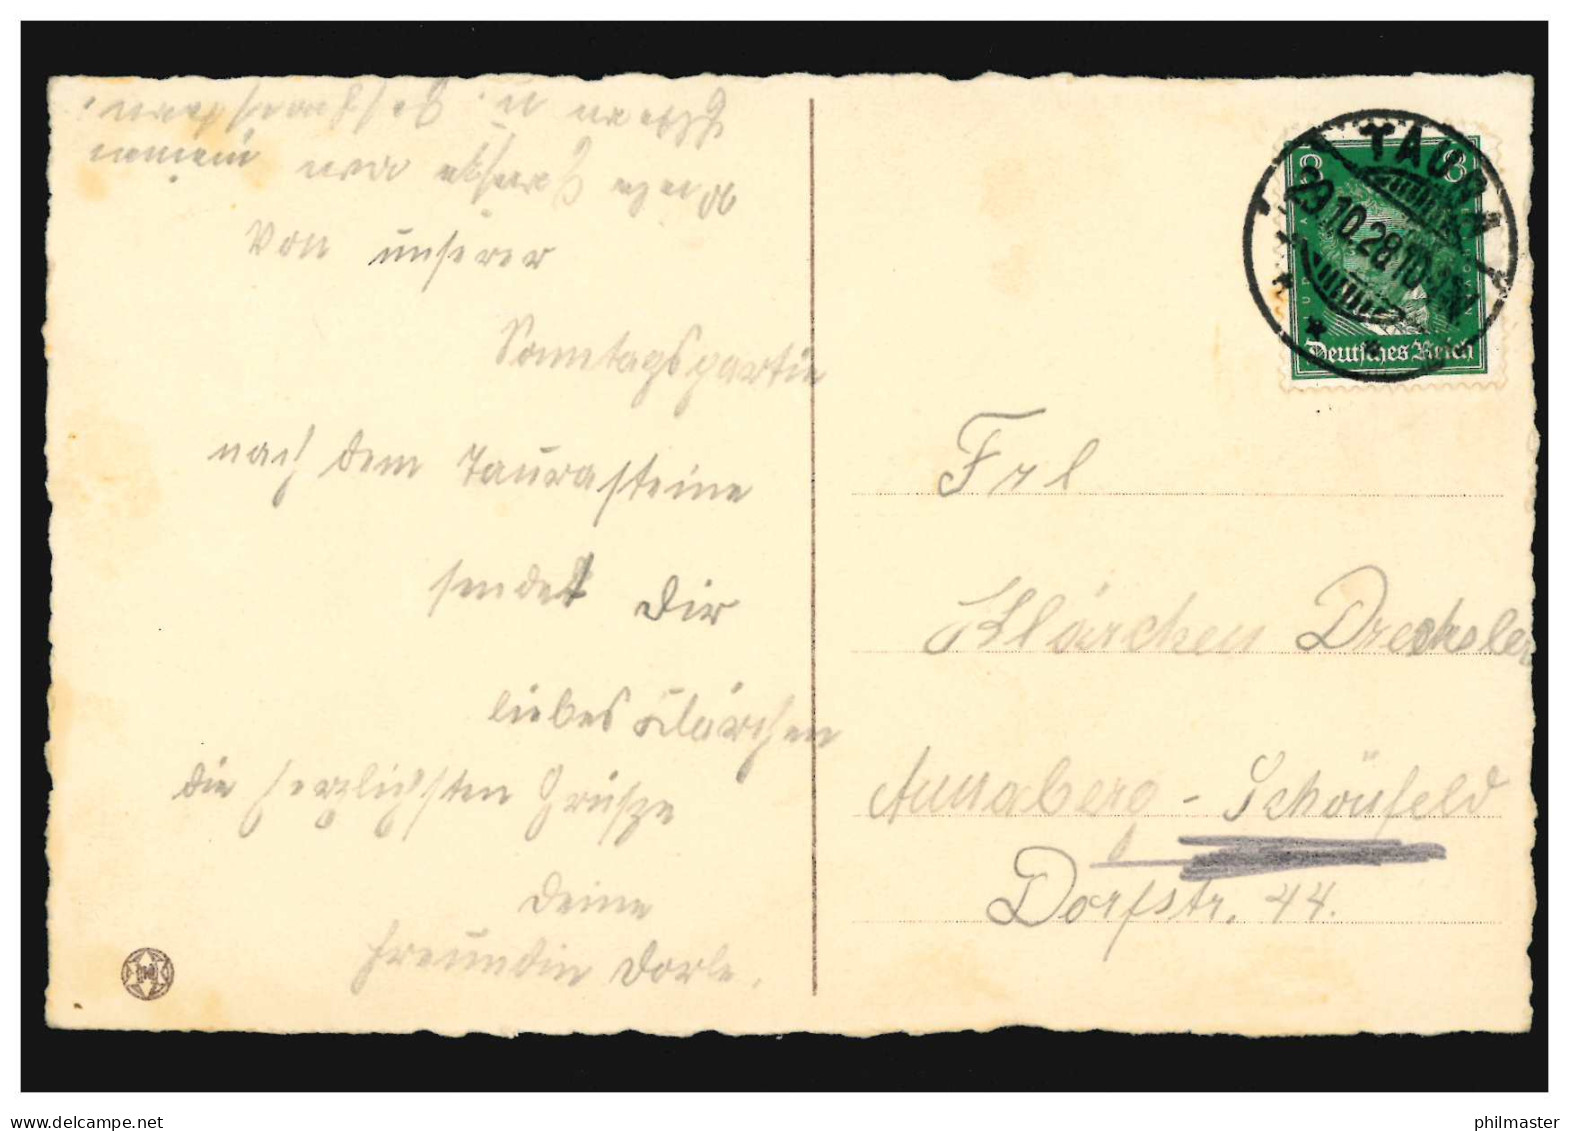 Von unserer
Sonntagspartie
nach dem Taurasteine
sendet Dir
liebes Klärchen
die herzlichsten Grüsze
Deine
Freundin Dorle.
viele Grüsze von meinen
Eltern u. Geschwistern.
TAURA
29.10.28.10
8 8
Deutsches Reich
Frl
Klärchen Drechsler
Annaberg - Schönfeld
Dorfstr. 44.
philmaster
www.delcampe.net